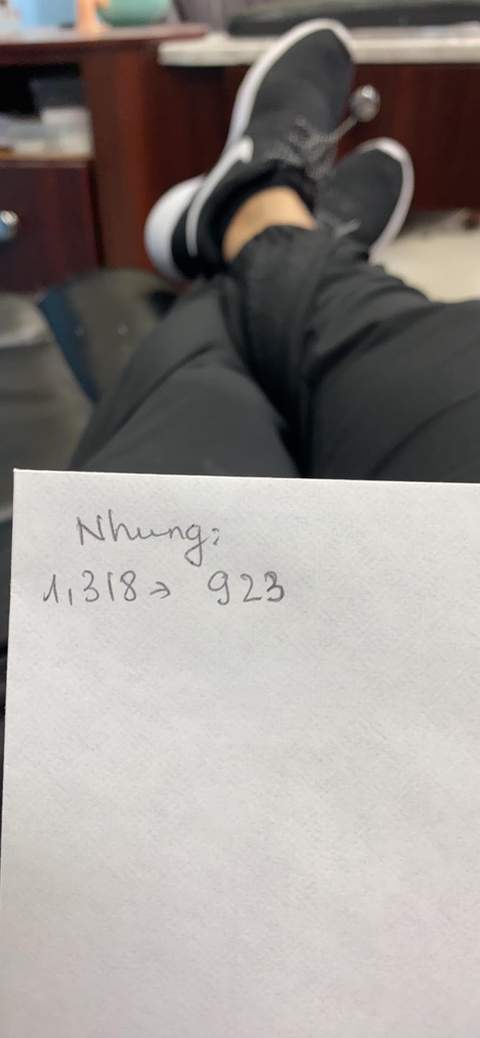 Nhung:
1,318 → 923